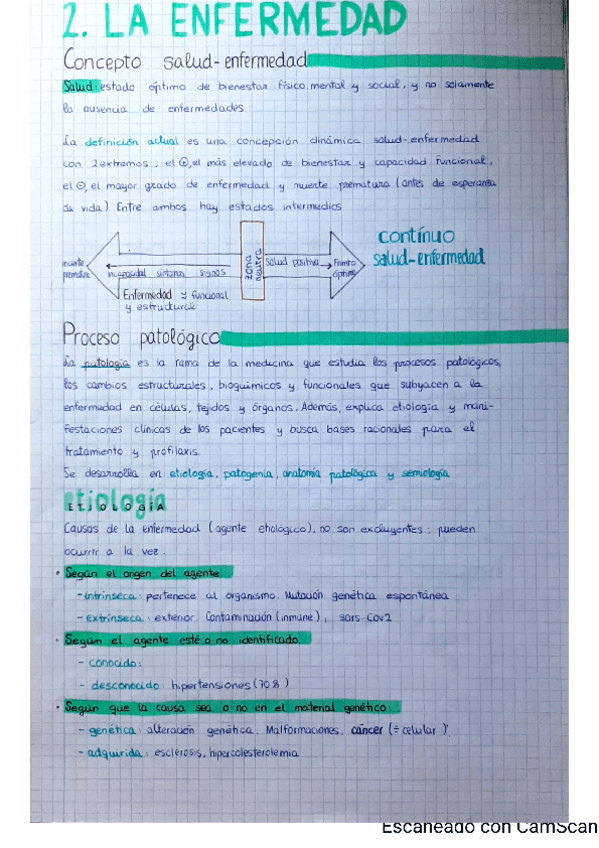 2. LA ENFERMEDAD
Concepto salud-enfermedad
Salud: estado óptimo de bienestar físico, mental y social, y no solamente
la ausencia de enfermedades.
La definición actual es una concepción dinámica salud-enfermedad
con 2 extremos: el ⊕, el más elevado de bienestar y capacidad funcional,
el ⊖, el mayor grado de enfermedad y muerte prematura (antes de esperanza
da vida) Entre ambos hay estados intermedios
contínuo
salud-enfermedad
muerte
prematura
incapacidad síntomas signos
zona
neutra
salud positiva
óptimo
Enfermedad funcional
y estructural
Proceso patológico
La patología es la rama de la medicina que estudia los procesos patológicos,
los cambios estructurales, bioquímicos y funcionales que subyacen a la
enfermedad en células, tejidos y órganos. Además, explica etiología y mani-
festaciones clínicas de los pacientes y busca bases racionales para el
tratamiento y profilaxis.
Se desarrolla en etiología, patogenia, anatomía patológica y semiología
etiología
ETIOLOGÍA
Causas de la enfermedad (agente etiológico), no son excluyentes: pueden
ocurrir a la vez.
· Según el origen del agente
- intrínseca: pertenece al organismo. Mutación genética espontánea
- extrínseca: exterior. Contaminación (inmune), sars-Cov2
· Según el agente esté o no identificado
- conocido:
- desconocido: hipertensiones (70%)
· Según que la causa sea o no en el material genético:
- genética: alteración genética. Malformaciones, cáncer (÷ celular)
- adquirida: esclerosis, hipercolesterolemia
Escaneado con CamScan